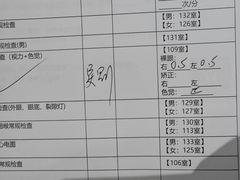 次/分
规检查
【男：132室】
【女：126室】
检查(男)
【131室】
（视力+色觉）
【109室】
裸眼：
右 0.5 左 0.5
矫正：
右 左
色觉：
检查(外眼、眼底、裂隙灯)
【男：129室】
【女：127室】
喉常规检查
【男：130室】
【女：113室】
心电图
【男：133室】
【女：125室】
常规检查
【106室】